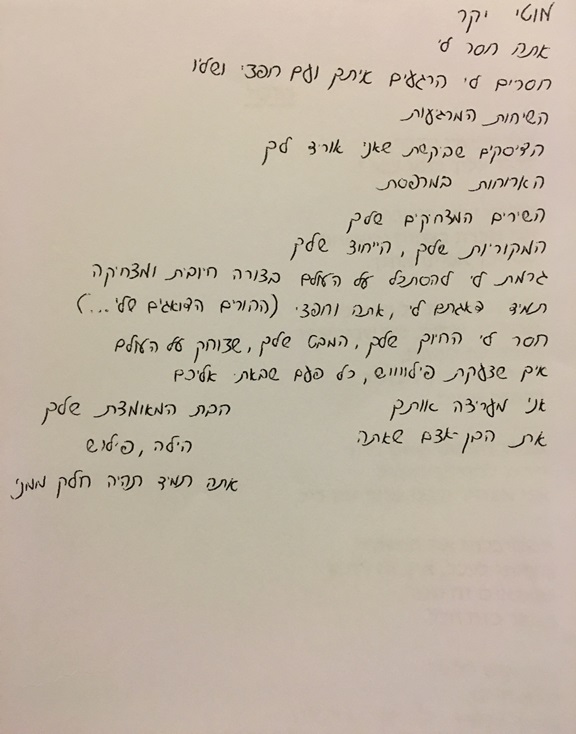 מוטי יקר
אתה חסר לי
חסרים לי הרגעים איתך ועם חפצי ושלו
השיחות המרגעות
הדיסקים שביקשת שאני אוריד לך
הארוחות במרפסת
השירים המצחיקים שלך
המקוריות שלך, הייחוד שלך
גרמת לי להסתכל על העולם בצורה חיובית ומצחיקה
תמיד דאגתם לי, אתה וחפצי (ההורים הדואגים שלי...)
חסר לי החיוך שלך, המבט שלך, שצוחק על העולם
איך שצעקת פילוייוש, כל פעם שבאתי אליכם
אני מעריצה אותך
את הבן-אדם שאתה
הבת המאומצת שלך
הילה, פילוש
אתה תמיד תהיה חלק ממני